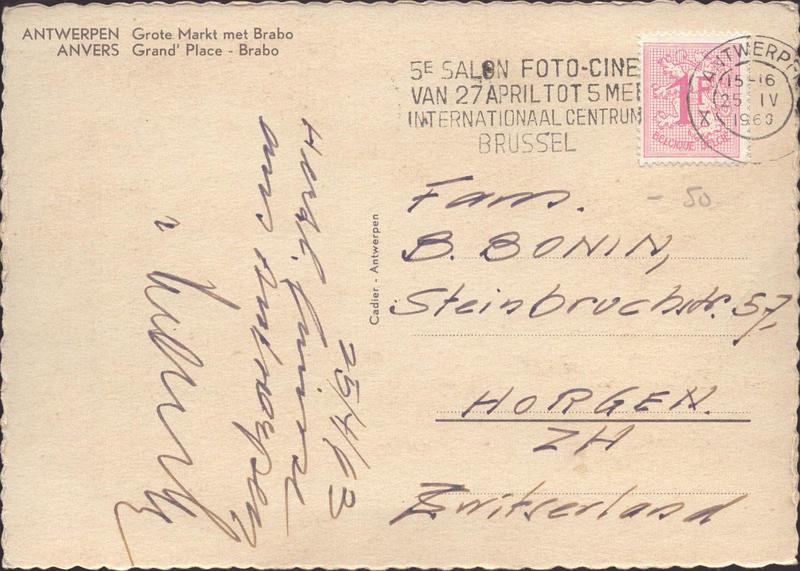 ANTWERPEN Grote Markt met Brabo
ANVERS Grand' Place - Brabo
5E SALON FOTO-CINE
VAN 27 APRIL TOT 5 MEI
INTERNATIONAAL CENTRUM
BRUSSEL
ANTWERPEN
15-16
25 IV
1963
1F
BELGIQUE-BELGIE
- 50
Fam.
B. BONIN,
Steinbruchstr. 57,
HORGEN.
ZH
Zwitserland
Cadier - Antwerpen
25/4/63
Herzl. Grüsse
aus Antwerpen